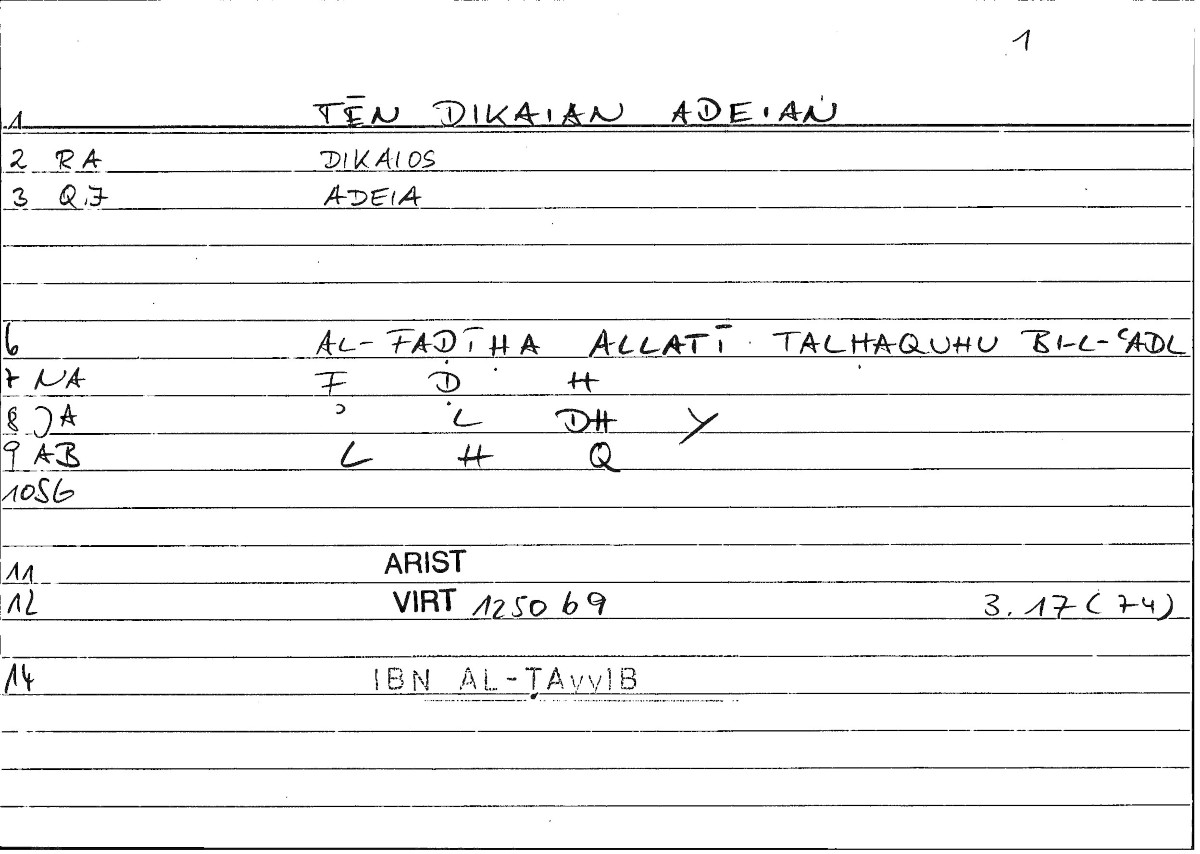 1
1 TĒN DIKAIAN ADEIAN
2 RA DIKAIOS
3 QF ADEIA
6 AL-FAḌĪḤA ALLATĪ TALḤAQUHU BI-L-ʿADL
7 NA F Ḍ Ḥ
8 JA ʾ L DH Y
9 AB L Ḥ Q
10 SG
11 ARIST
12 VIRT 1250 b9 3.17 (74)
14 IBN AL-ṬAYYIB